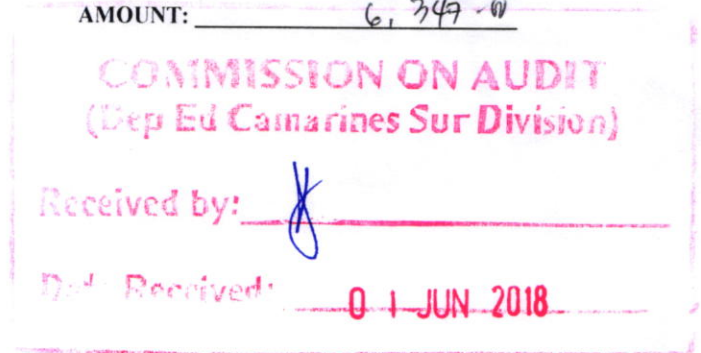 AMOUNT: 6, 347 -
COMMISSION ON AUDIT
(Dep Ed Camarines Sur Division)
Received by:
Date Received: 01 JUN 2018